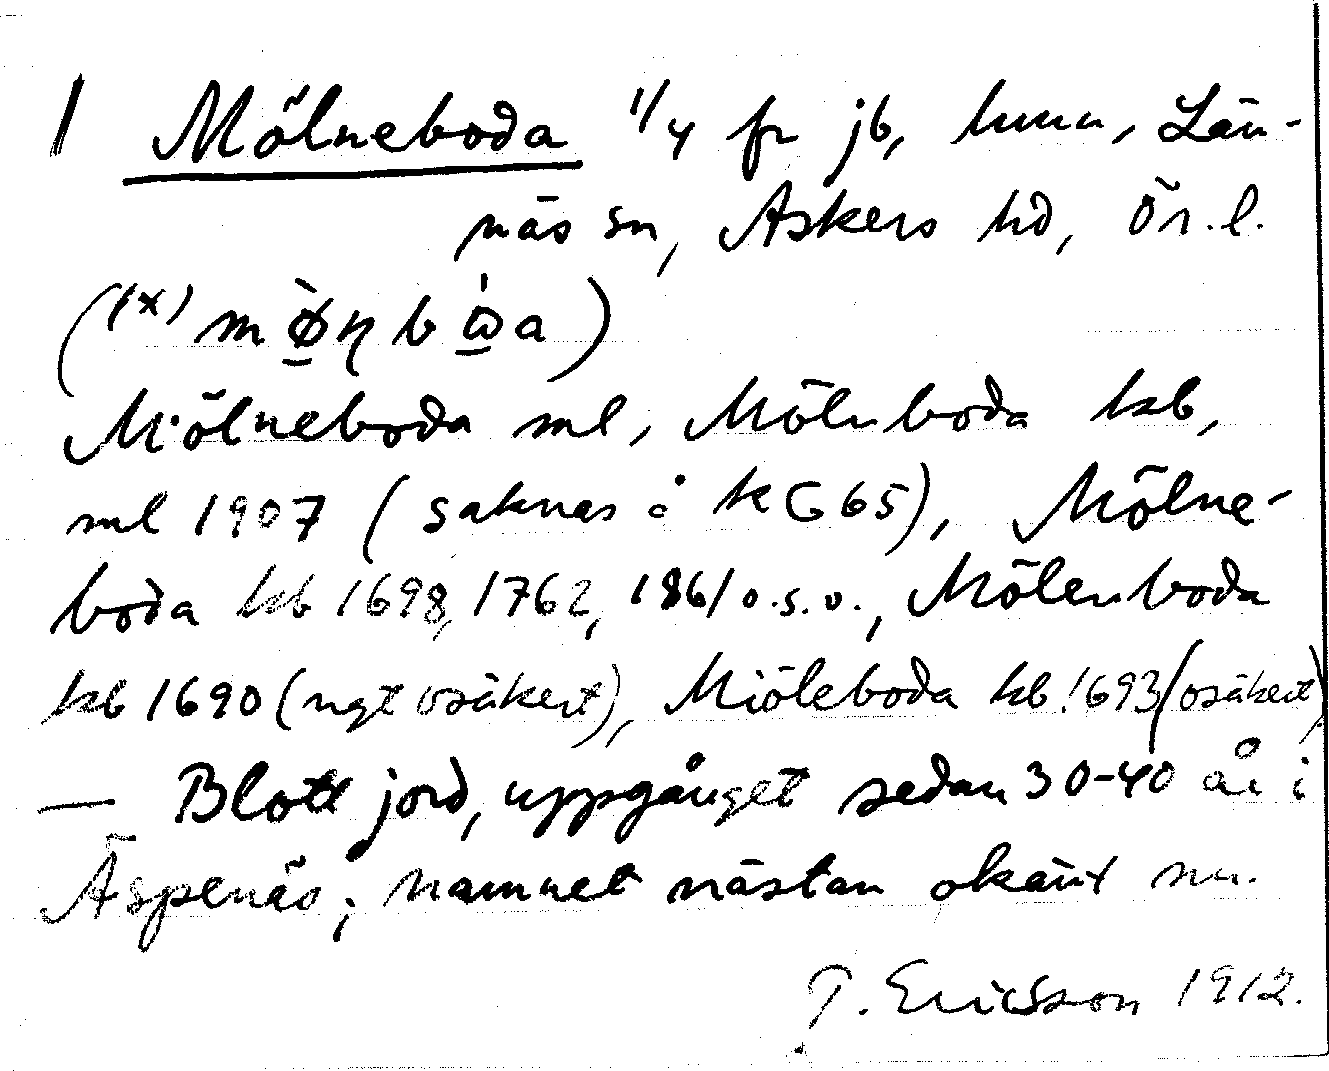 1 Mölneboda 1/4 fr jb, hmn, Län-
näs sn, Askers hd, Ör. l.
Mölneboda ml, Mölnboda kb,
ml 1907 (saknas å kG65), Mölne-
boda kb 1698, 1762, 1861 o.s.v., Mölenboda
kb 1690 (ngt osäkert), Miöleboda kb 1693 (osäkert)
— Blott jord, uppgånget sedan 30-40 år i
Äspenäs; namnet nästan okänt nu.
T. Ericsson 1912.